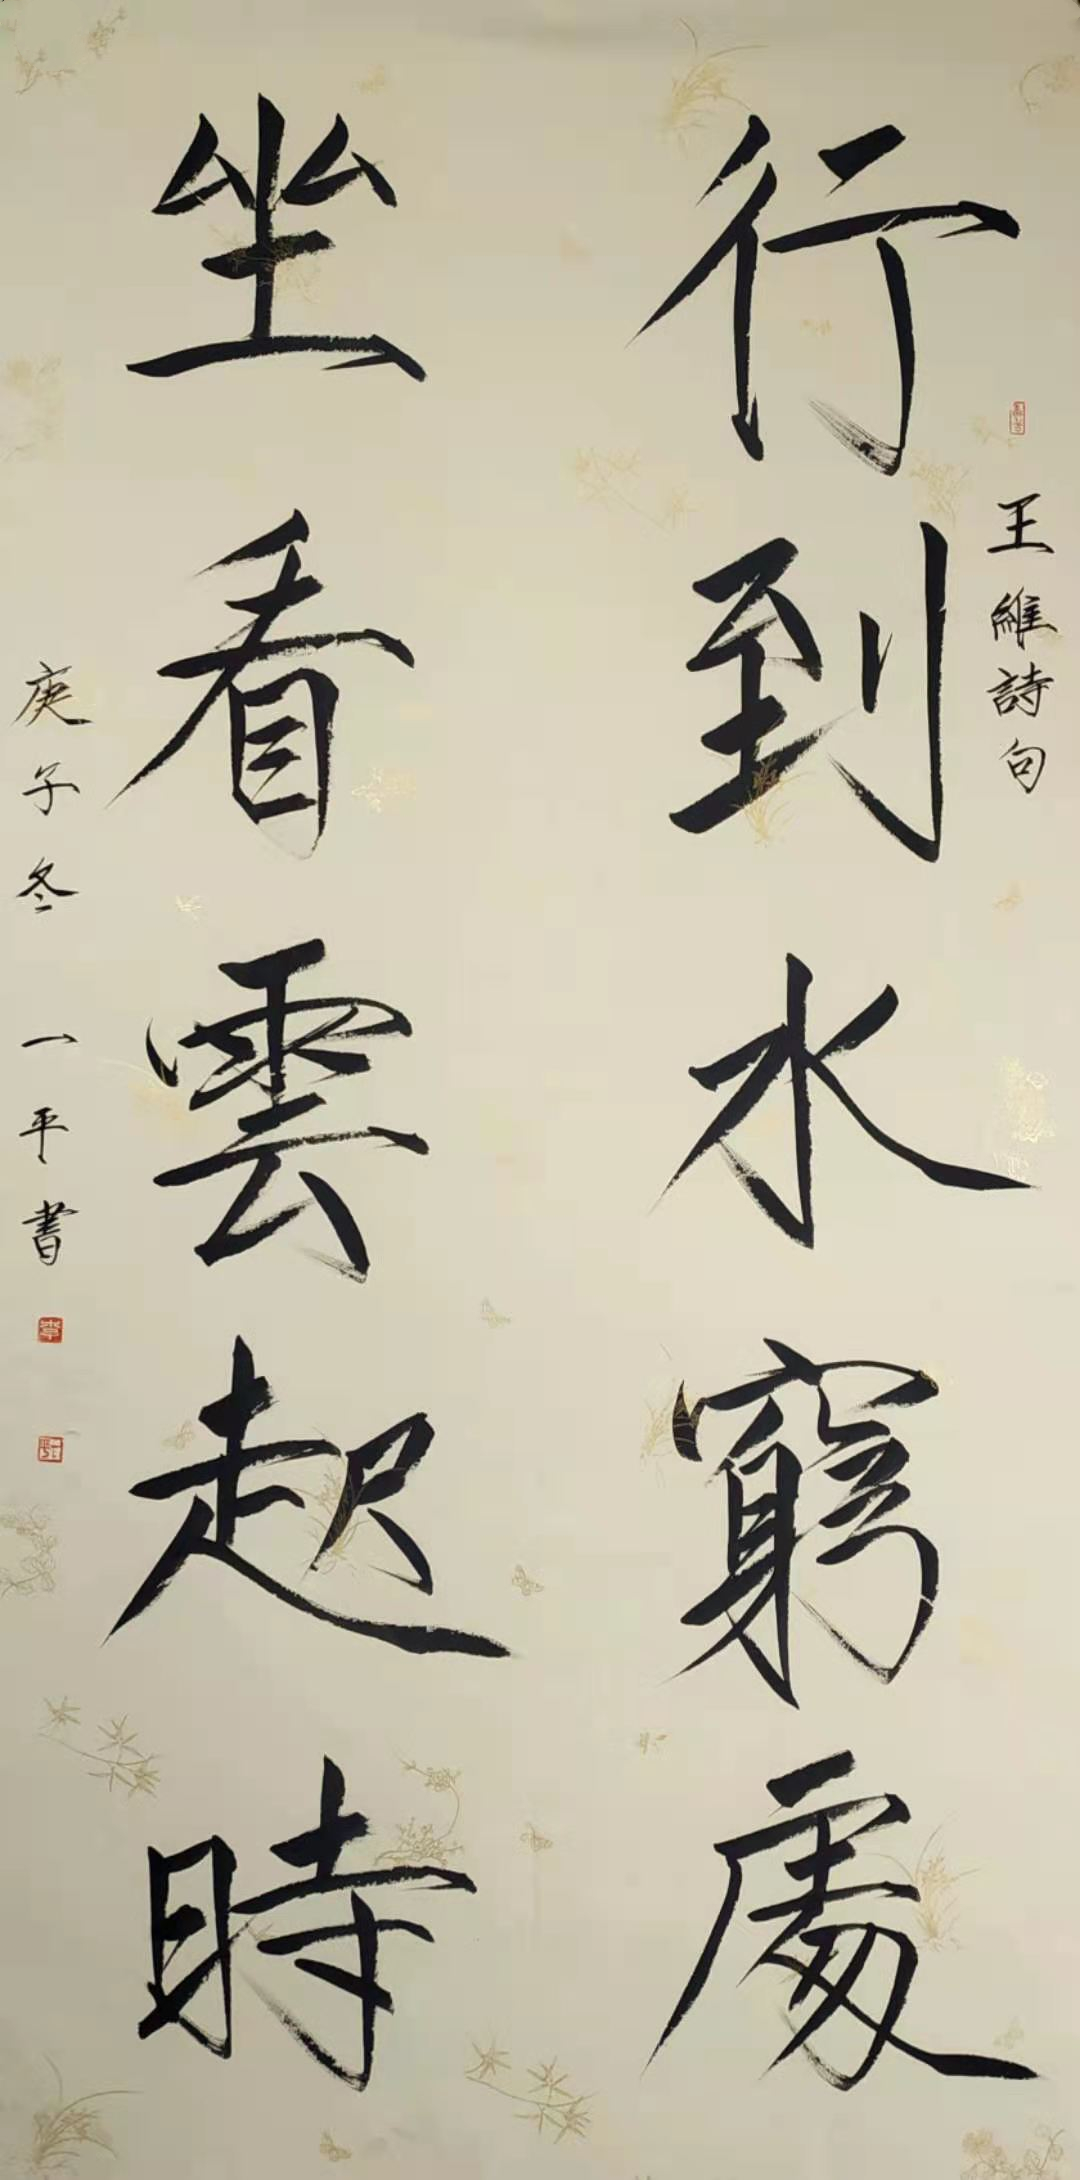 王維詩句
行到水窮處
坐看雲起時
庚子冬 一平書